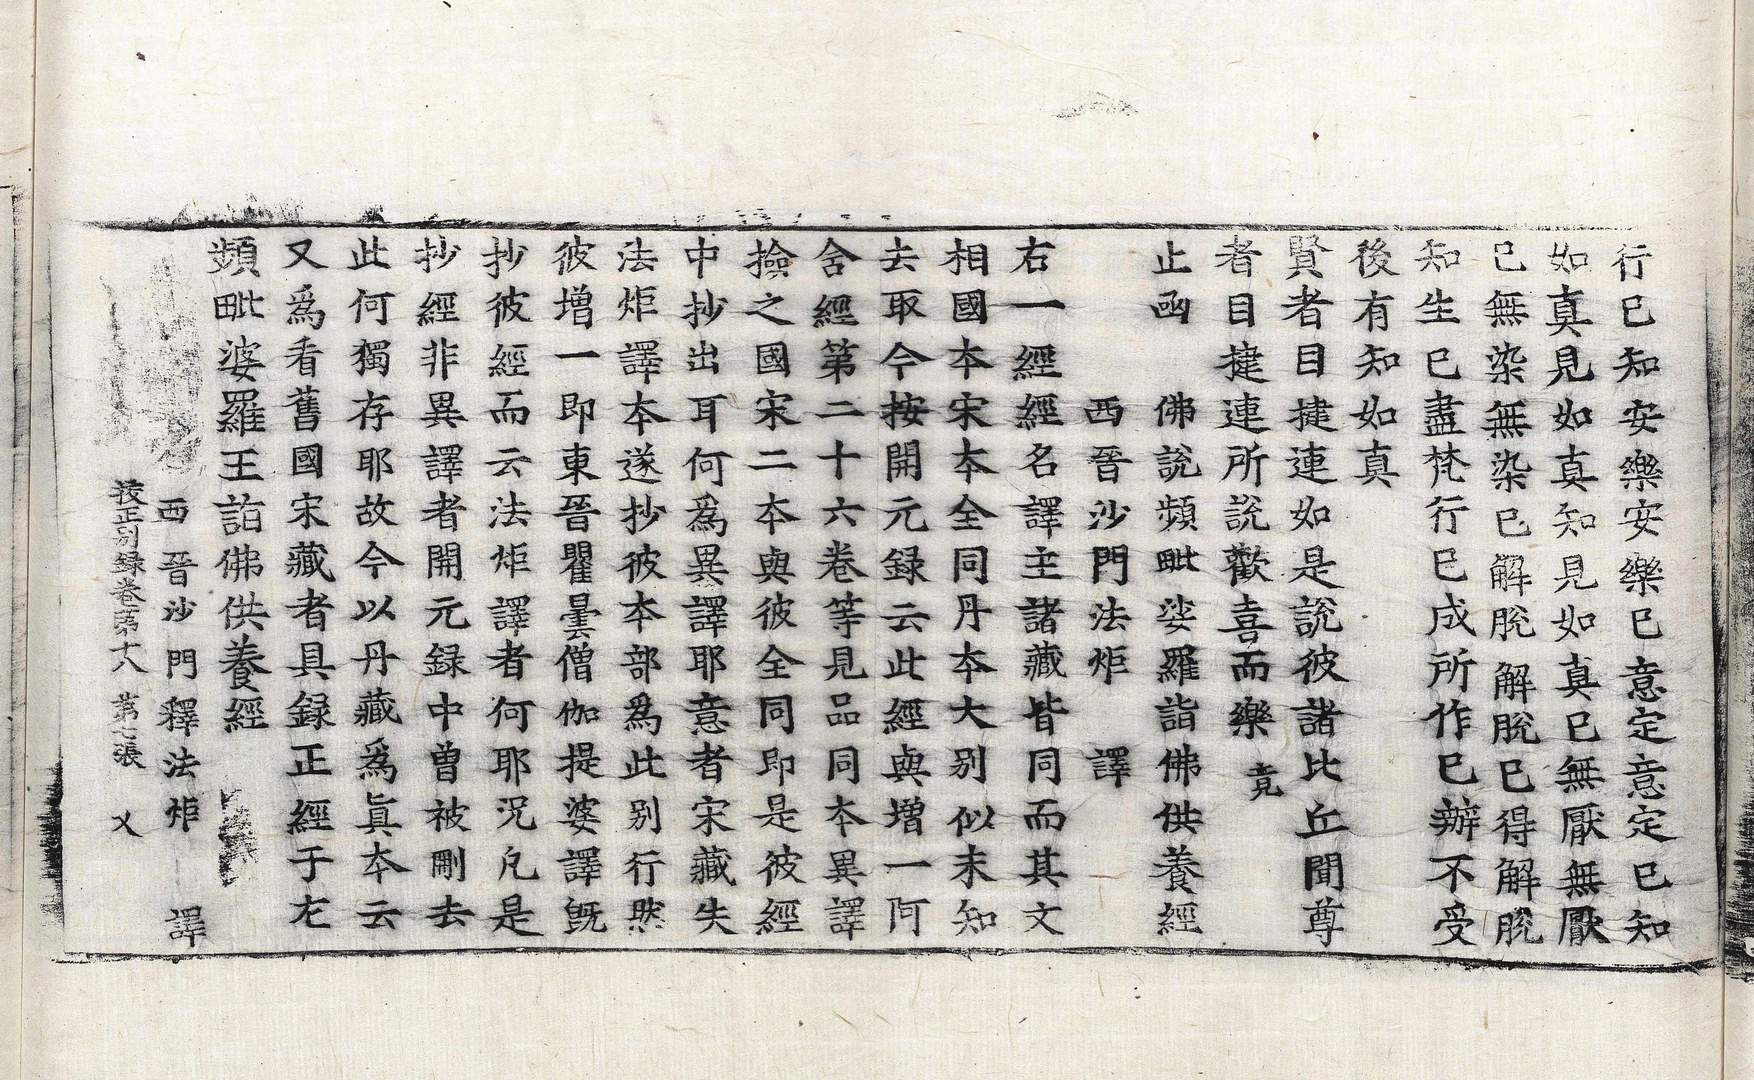 行已知安樂安樂已意定意定已知
如真見如真知見如真已無厭無厭
已無染無染已解脫解脫已得解脫
知生已盡梵行已成所作已辦不受
後有知如真
賢者目揵連如是說彼諸比丘聞尊
者目揵連所說歡喜而樂 竟
止函 佛說頻毗娑羅詣佛供養經
西晉沙門法炬 譯
右一經經名譯主諸藏皆同而其文
相國本宋本全同丹本大別似未知
去取今按開元録云此經與增一阿
含經第二十六卷等見品同本異譯
撿之國宋二本與彼全同即是彼經
中抄出耳何為異譯耶意者宋藏失
法炬譯本遂抄彼本部為此別行然
彼增一即東晉瞿曇僧伽提婆譯旣
抄彼經而云法炬譯者何耶況凡是
抄經非異譯者開元録中曾被刪去
此何獨存耶故今以丹藏為眞本云
又為看舊國宋藏者具録正經于左
頻毗婆羅王詣佛供養經
西晉沙門釋法炬 譯
挍正別録卷第十八 第七張 乂